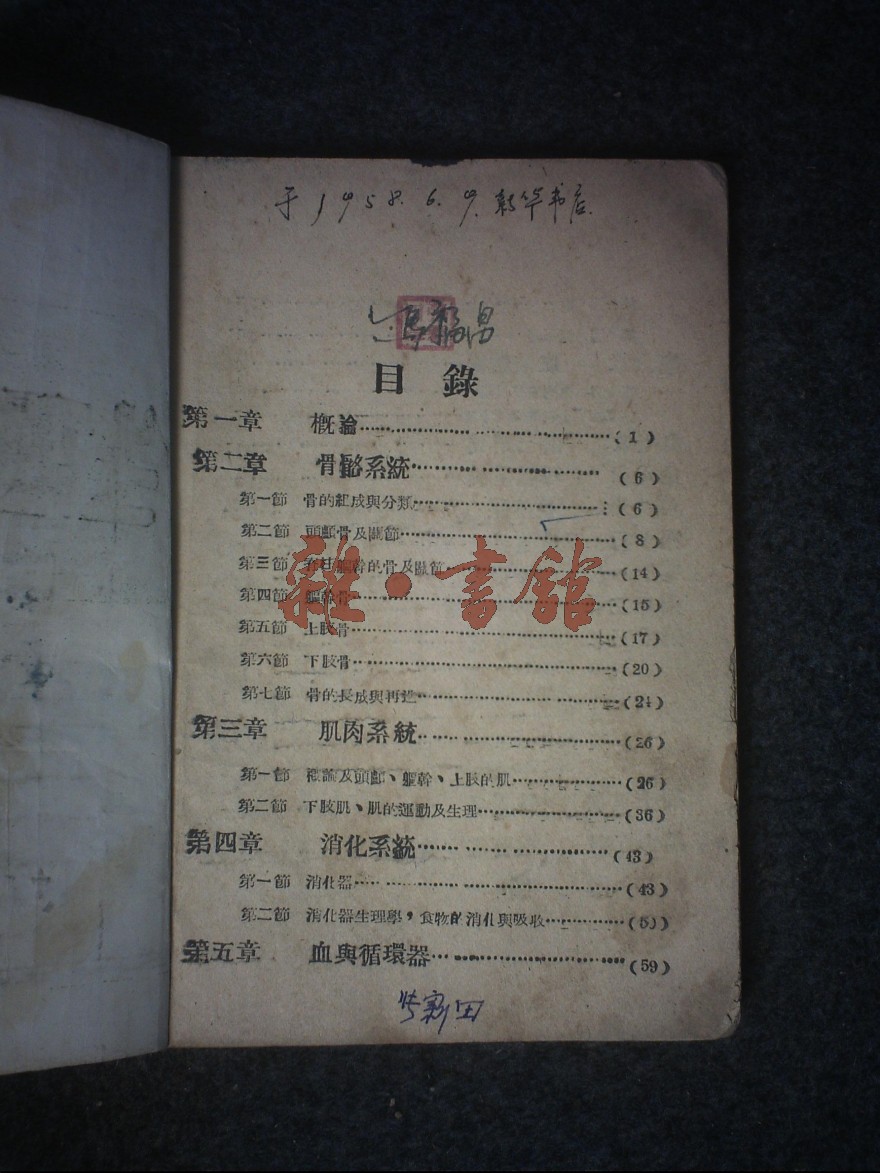 于1958.6.9.新华书店.
目錄
第一章 概論……(1)
第二章 骨骼系統……(6)
第一節 骨的組成與分類……(6)
第二節 頭顱骨及關節……(8)
第三節 脊柱軀幹的骨及關節……(14)
第四節 軀幹骨……(15)
第五節 上肢骨……(17)
第六節 下肢骨……(20)
第七節 骨的長成與再造……(24)
第三章 肌肉系統……(26)
第一節 概論及頭部、軀幹、上肢的肌……(26)
第二節 下肢肌、肌的運動及生理……(36)
第四章 消化系統……(43)
第一節 消化器……(43)
第二節 消化器生理學，食物的消化與吸收……(50)
第五章 血與循環器……(59)
雜·書館